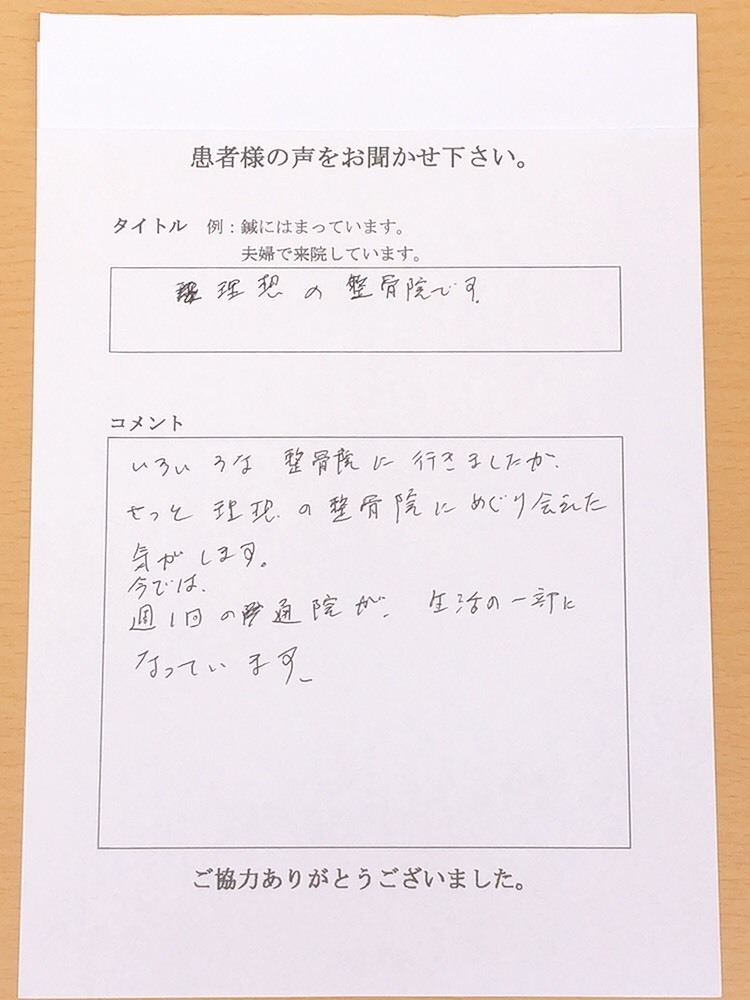 患者様の声をお聞かせ下さい。
タイトル　例：鍼にはまっています。
夫婦で来院しています。
理想の整骨院です。
コメント
いろいろな整骨院に行きましたが、
やっと理想の整骨院にめぐり会えた
気がします。
今では、
週1回の通院が、生活の一部に
なっています。
ご協力ありがとうございました。